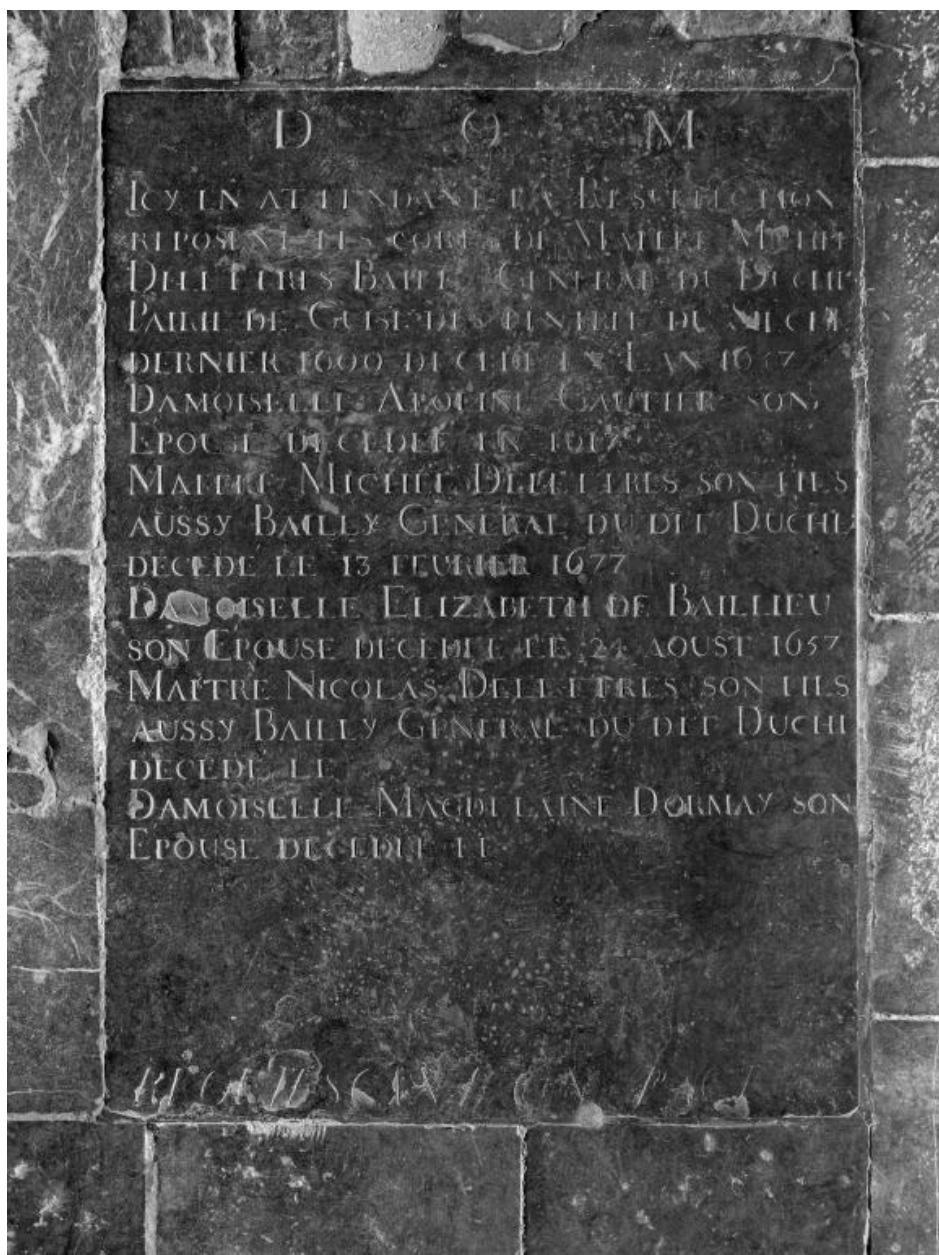 D O M
ICY EN ATTENDANT LA RESURECTION
REPOSENT LES CORPS DE MAITRE MICHEL
DELLETRES BAILLY GENERAL DU DUCHE
PAIRIE DE GUISE DU SIECLE
DERNIER 1600 DECEDE EN LAN
DAMOISELLE APOLINE GAUTIER SON
EPOUSE DECEDEE EN
MAITRE MICHEL DELLETRES SON FILS
AUSSY BAILLY GENERAL DU DIT DUCHE
DECEDE LE 13 FEURIER 1677
DAMOISELLE ELIZABETH DE BAILLIEU
SON EPOUSE DECEDEE LE 24 AOUST 1657
MAITRE NICOLAS DELLETRES SON FILS
AUSSY BAILLY GENERAL DU DIT DUCHE
DECEDE LE
DAMOISELLE MAGDELAINE DORMAY SON
EPOUSE DECEDEE LE